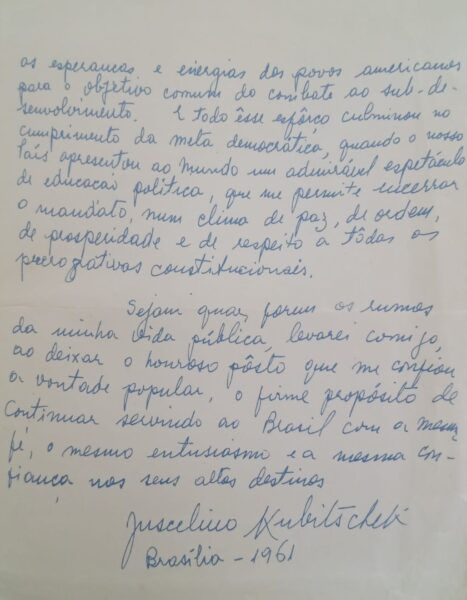 as esperanças e energias dos povos americanos
para o objetivo comum do combate ao sub-de-
senvolvimento. E todo êsse esfôrço culminou no
cumprimento da meta democrática, quando o nosso
País apresentou ao mundo um admirável espetáculo
de educação política, que me permite encerrar
o mandato, num clima de paz, de ordem,
de prosperidade e de respeito a tôdas as
prerrogativas constitucionais.
Sejam quais forem os rumos
da minha vida pública, levarei comigo,
ao deixar o honroso pôsto que me confiou
a vontade popular, o firme propósito de
continuar servindo ao Brasil com a mesma
fé, o mesmo entusiasmo e a mesma con-
fiança nos seus altos destinos
Juscelino Kubitschek
Brasília - 1961